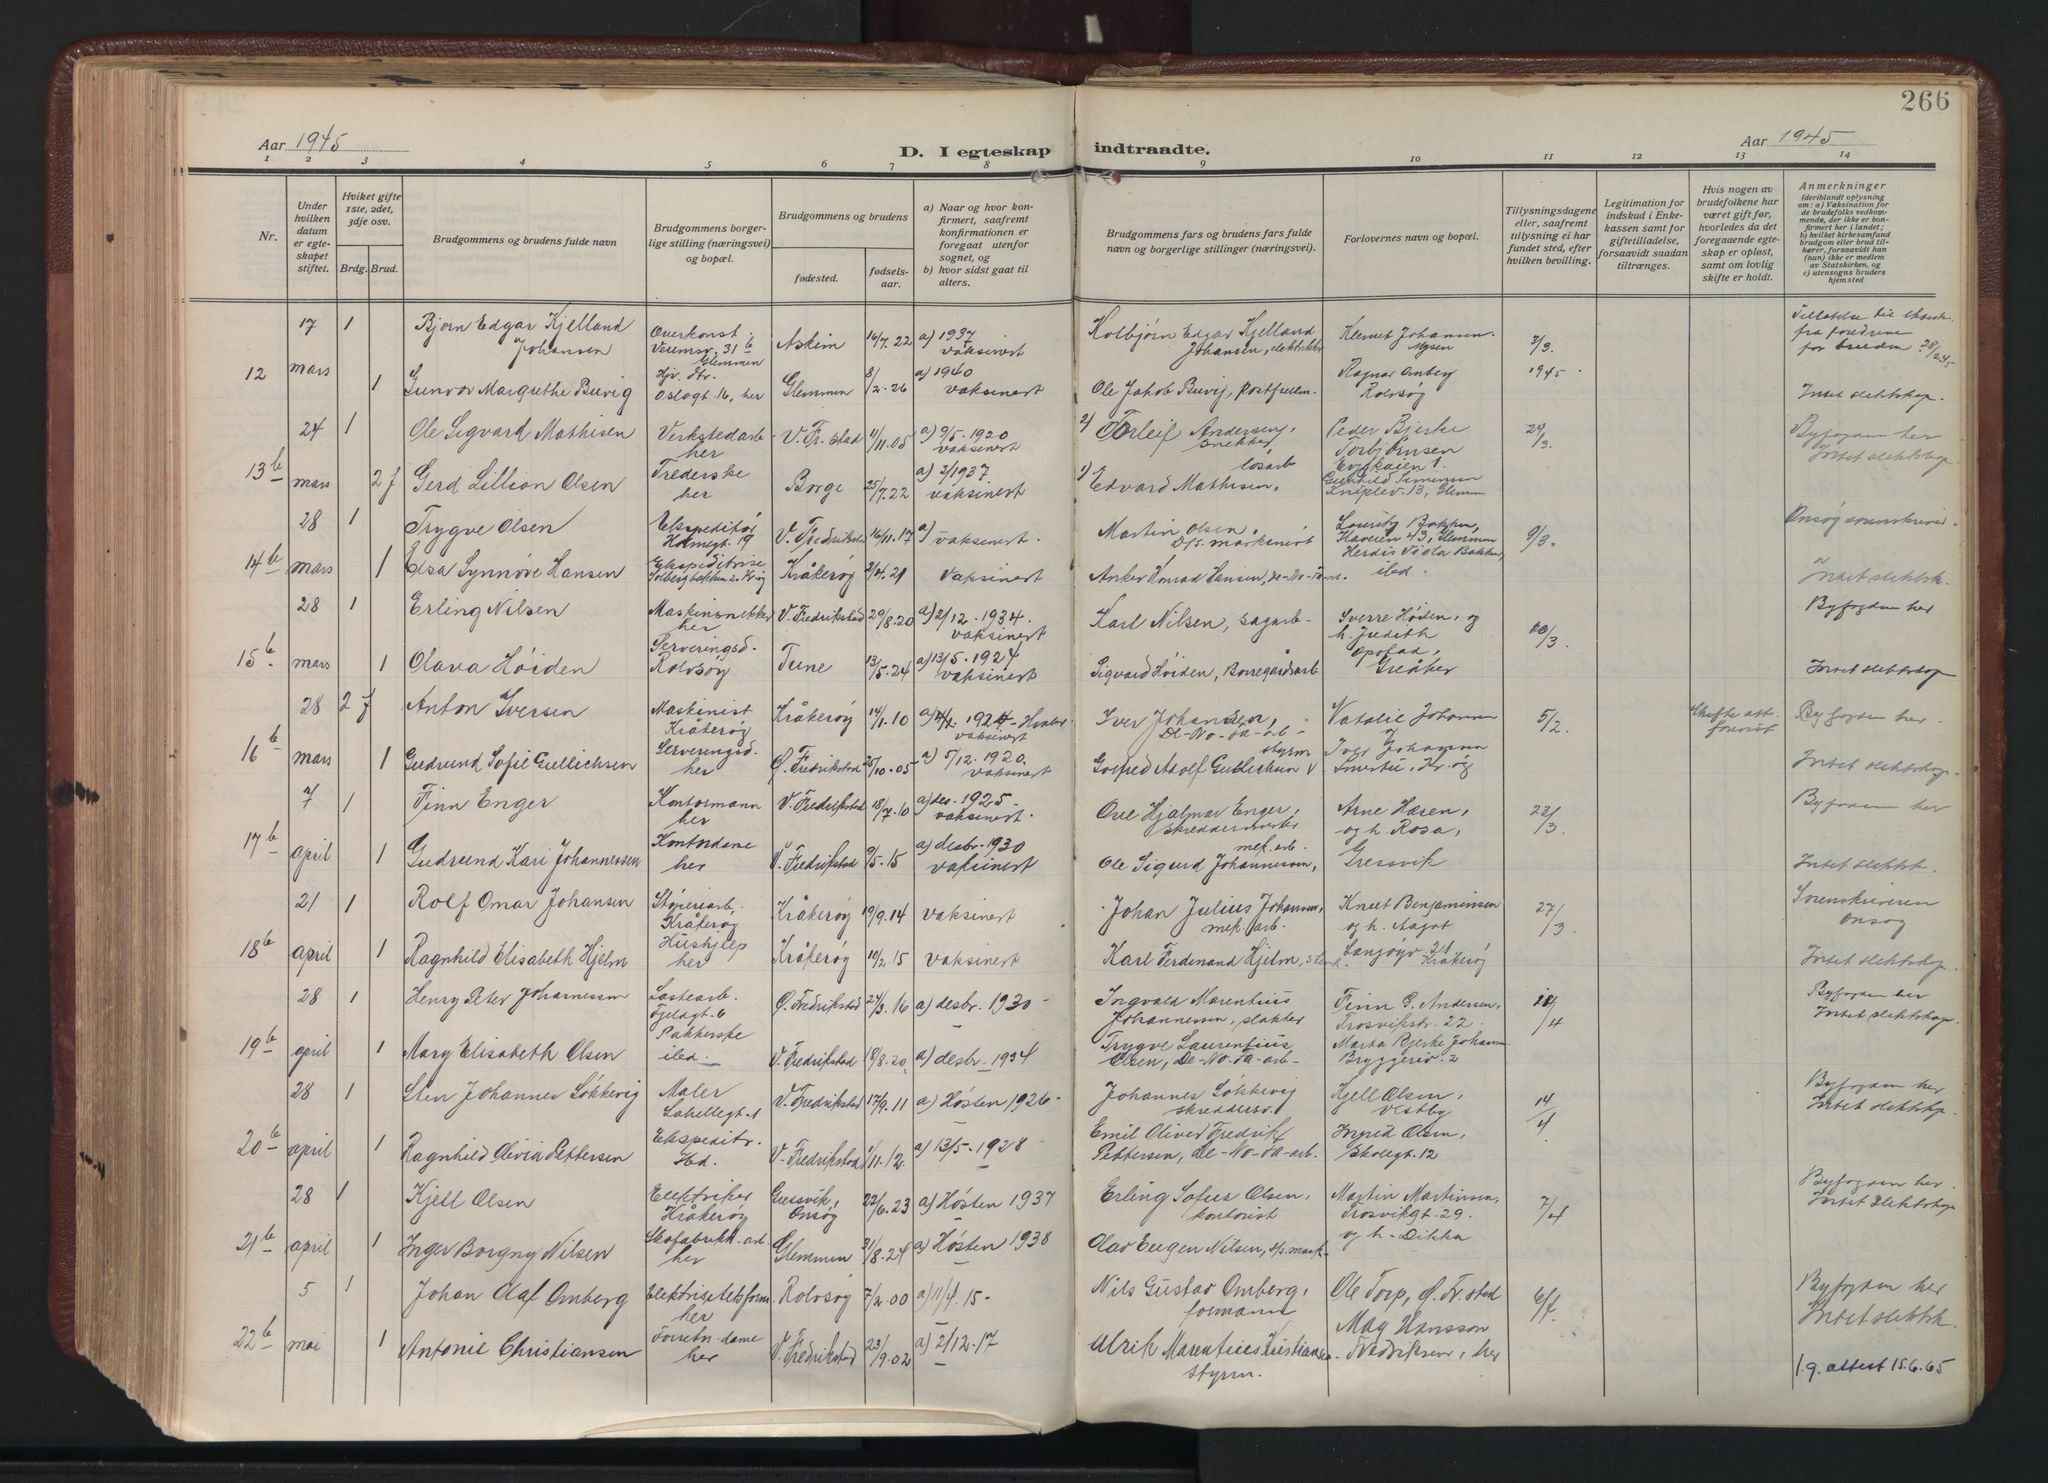 266
Aar 1945
D. I egteskap indtraadte.
Aar 1945
1 2 3 4 5 6 7 8 9 10 11 12 13 14
Nr.
Under hvilken datum er egteskapet stiftet.
Hviket gifte 1ste, 2det, 3dje osv.
Brdg. Brud.
Brudgommens og brudens fulde navn
Brudgommens borgerlige stilling (næringsvei) og bopæl.
Brudgommens og brudens
fødested.
fødselsaar.
a) Naar og hvor konfirmert, saafremt konfirmationen er foregaat utenfor sognet, og
b) hvor sidst gaat til alters.
Brudgommens fars og brudens fars fulde navn og borgerlige stillinger (næringsvei).
Forlovernes navn og bopæl.
Tillysningsdagene eller, saafremt tillysning ei har fundet sted, efter hvilken bevilling.
Legitimation for indskud i Enkekassen samt for giftetilladelse, forsaavidt saadan tiltrænges.
Hvis nogen av brudefolkene har været gift før, hvorledes da det foregaaende egteskap er opløst, samt om lovlig skifte er holdt.
Anmerkninger (deriblandt oplysning om: a) Vaksination for de brudefolks vedkommende, der ikke er konfirmert her i landet; b) hvilket kirkesamfund brudgom eller brud tilhører, forsaavidt han (hun) ikke er medlem av Statskirken, og c) utensogns bruders hjemsted
17 1 Bjørn Edgar Kjelland Johansen 31 b Glemmen Askim 16/7.22 a) 1937 vaksinert Kolbjørn Edgar Kjelland Johansen, elektriker Klemet Johansen Mysen 2/3. fra foreldrene for bruden 28/2.45
12 mars 1 Gunvor Margrethe Buvig Oslogt 16, her Glemmen 8/2.26 a) 1940 vaksinert Ole Jakob Buvig, postfullm. Ragnar Omberg Rolvsøy 1945 Intet slektskap.
24 1 Ole Sigvard Mathisen Verkstedarb her V. Fr.stad 11/11.05 a) 9/5.1920 vaksinert 2) Torleif Andersen, snekker Peder Bjerke Torbjørnsen 24/3. Byfogden her Intet slektskap
13 b mars 2 f Gerd Lillian Olsen her Borge 25/7.22 a) 3/1937. vaksinert 1) Edvard Mathisen, løsarb 13, Glemm
28 1 Trygve Olsen Ekspeditør 19 V. Fredrikstad 16/11.17 a) vaksinert. Martin Olsen Lauritz Bakken, Glemmen Herdis Viola Bakken, ibd. 9/3. Onsøy sorenskriver
14 b mars 1 Elsa Synnøve Hansen Ekspeditrise Kråkerøy vaksinert Anker Konrad Hansen, De-No-Fa-m. Intet slektsk.
28 1 Erling Nilsen Maskinsnekker her V. Fredrikstad 29/8.20 a) 2/12.1934. vaksinert Karl Nilsen, sagarb- Sverre Høiden, og h. Judith Opstad, Greåker Byfogden her
15 b mars 1 Olava Høiden Serveringsd. Rolvsøy Tune 13/5.24 a) 13/5.1924 vaksinert Sigvard Høiden, Borregårdsarb Intet slektskap
28 2 f Anton Iversen Maskinist Kråkerøy Kråkerøy 14/1.10 1924 - Hvaler vaksinert Iver Johansen, De-No-Fa-arb- Natalie Johansen og 5/2 Skifte att. forevist Byfogden her.
16 b mars 1 Gudrund Sofie Gullichsen Serveringsd. her Ø. Fredrikstad 25/10.05 a) 5/12.1920. vaksinert Gotfred Adolf Gullichsen styrm Iver Johansen Kr.øy Intet slektskap.
7 1 Finn Enger Kontormann her V. Fredrikstad 18/7.10 a) des. 1925 - vaksinert. Ove Hjalmar Enger, skreddermester Arne Haren, og h. Rosa, Gressvik 22/3. Byfogden her
17 b april 1 Gudrund Kari Johannessen Kontordame her V. Fredrikstad 9/5.15 a) desbr. 1930 vaksinert Ole Sigurd Johannessen, mek.arb. Intet slektsk.
21 1 Rolf Omar Johansen Støperiarb, Kråkerøy Kråkerøy 19/9.14 vaksinert Johan Julius Johansen, mek. arb. Knut Benjaminsen og h. Aagot 27/3 Sorenskriveren Onsøy
18 b april 1 Ragnhild Elisabeth Hjelm Hushjelp her Kråkerøy 10/2.15 vaksinert Karl Ferdinand Hjelm, 21 Kråkerøy Intet slektskap.
28 1 Henry Peter Johannessen Lastearb. 6 Ø. Fredrikstad 24/3.16 a) desbr. 1930 - Ingvald Marentius Johannessen, slakter Finn G. Andersen, Trosvikstr. 22. /4 Byfogden her Intet slektskap
19 b april 1 Mary Elisabeth Olsen Pakkerske ibd. V. Fredrikstad 18/8.20 a) desbr. 1934 Trygve Laurentius Olsen, De-No-Fa-arb- Marta Bjerke Johansen Bryggeriv. 2
28 1 Sten Johannes Søkkevig Maler V. Fredrikstad 17/9.11 a) Høsten 1926 - Johannes Søkkevig Kjell Olsen, Vestby 14/4 Byfogden her Intet slektskap
20 b april 1 Ragnhild Olivia Pettersen Ekspeditr. ibd. V. Fredrikstad 1/11.12. a) 13/5.1928 Emil Oliver Fredrik Pettersen, De-No-Fa-arb. Ingrid Olsen, Skolegt. 12
28 1 Kjell Olsen Elektriker Kråkerøy Gressvik, Onsøy 22/6.23 a) Høsten 1937 Erling Sofus Olsen, kontorist Martin Martinsen, Trosvikgt. 29. og h. Dikka 7/4 Byfogden her. Intet slektskap
21 b april 1 Inger Borgny Nilsen Skofabrikk-arb her Glemmen 31/8.24 a) Høsten 1938 Olav Eugen Nilsen,
5 1 Johan Olaf Omberg Elektrisitetsform. her Rolvsøy 7/2.00 a) 11/4.15 - Nils Gustav Omberg, formann Ole Torp, Ø. Fr.stad Byfogden her Intet slektsk.
22 b mai 1 Antonie Christiansen Forretn.dame her V. Fredrikstad 23/9.02 a) 2/12.17 Ulrik Marentius Kristiansen styrm. May Hansson Fredriksen, her 1.g. attest 15.6.65